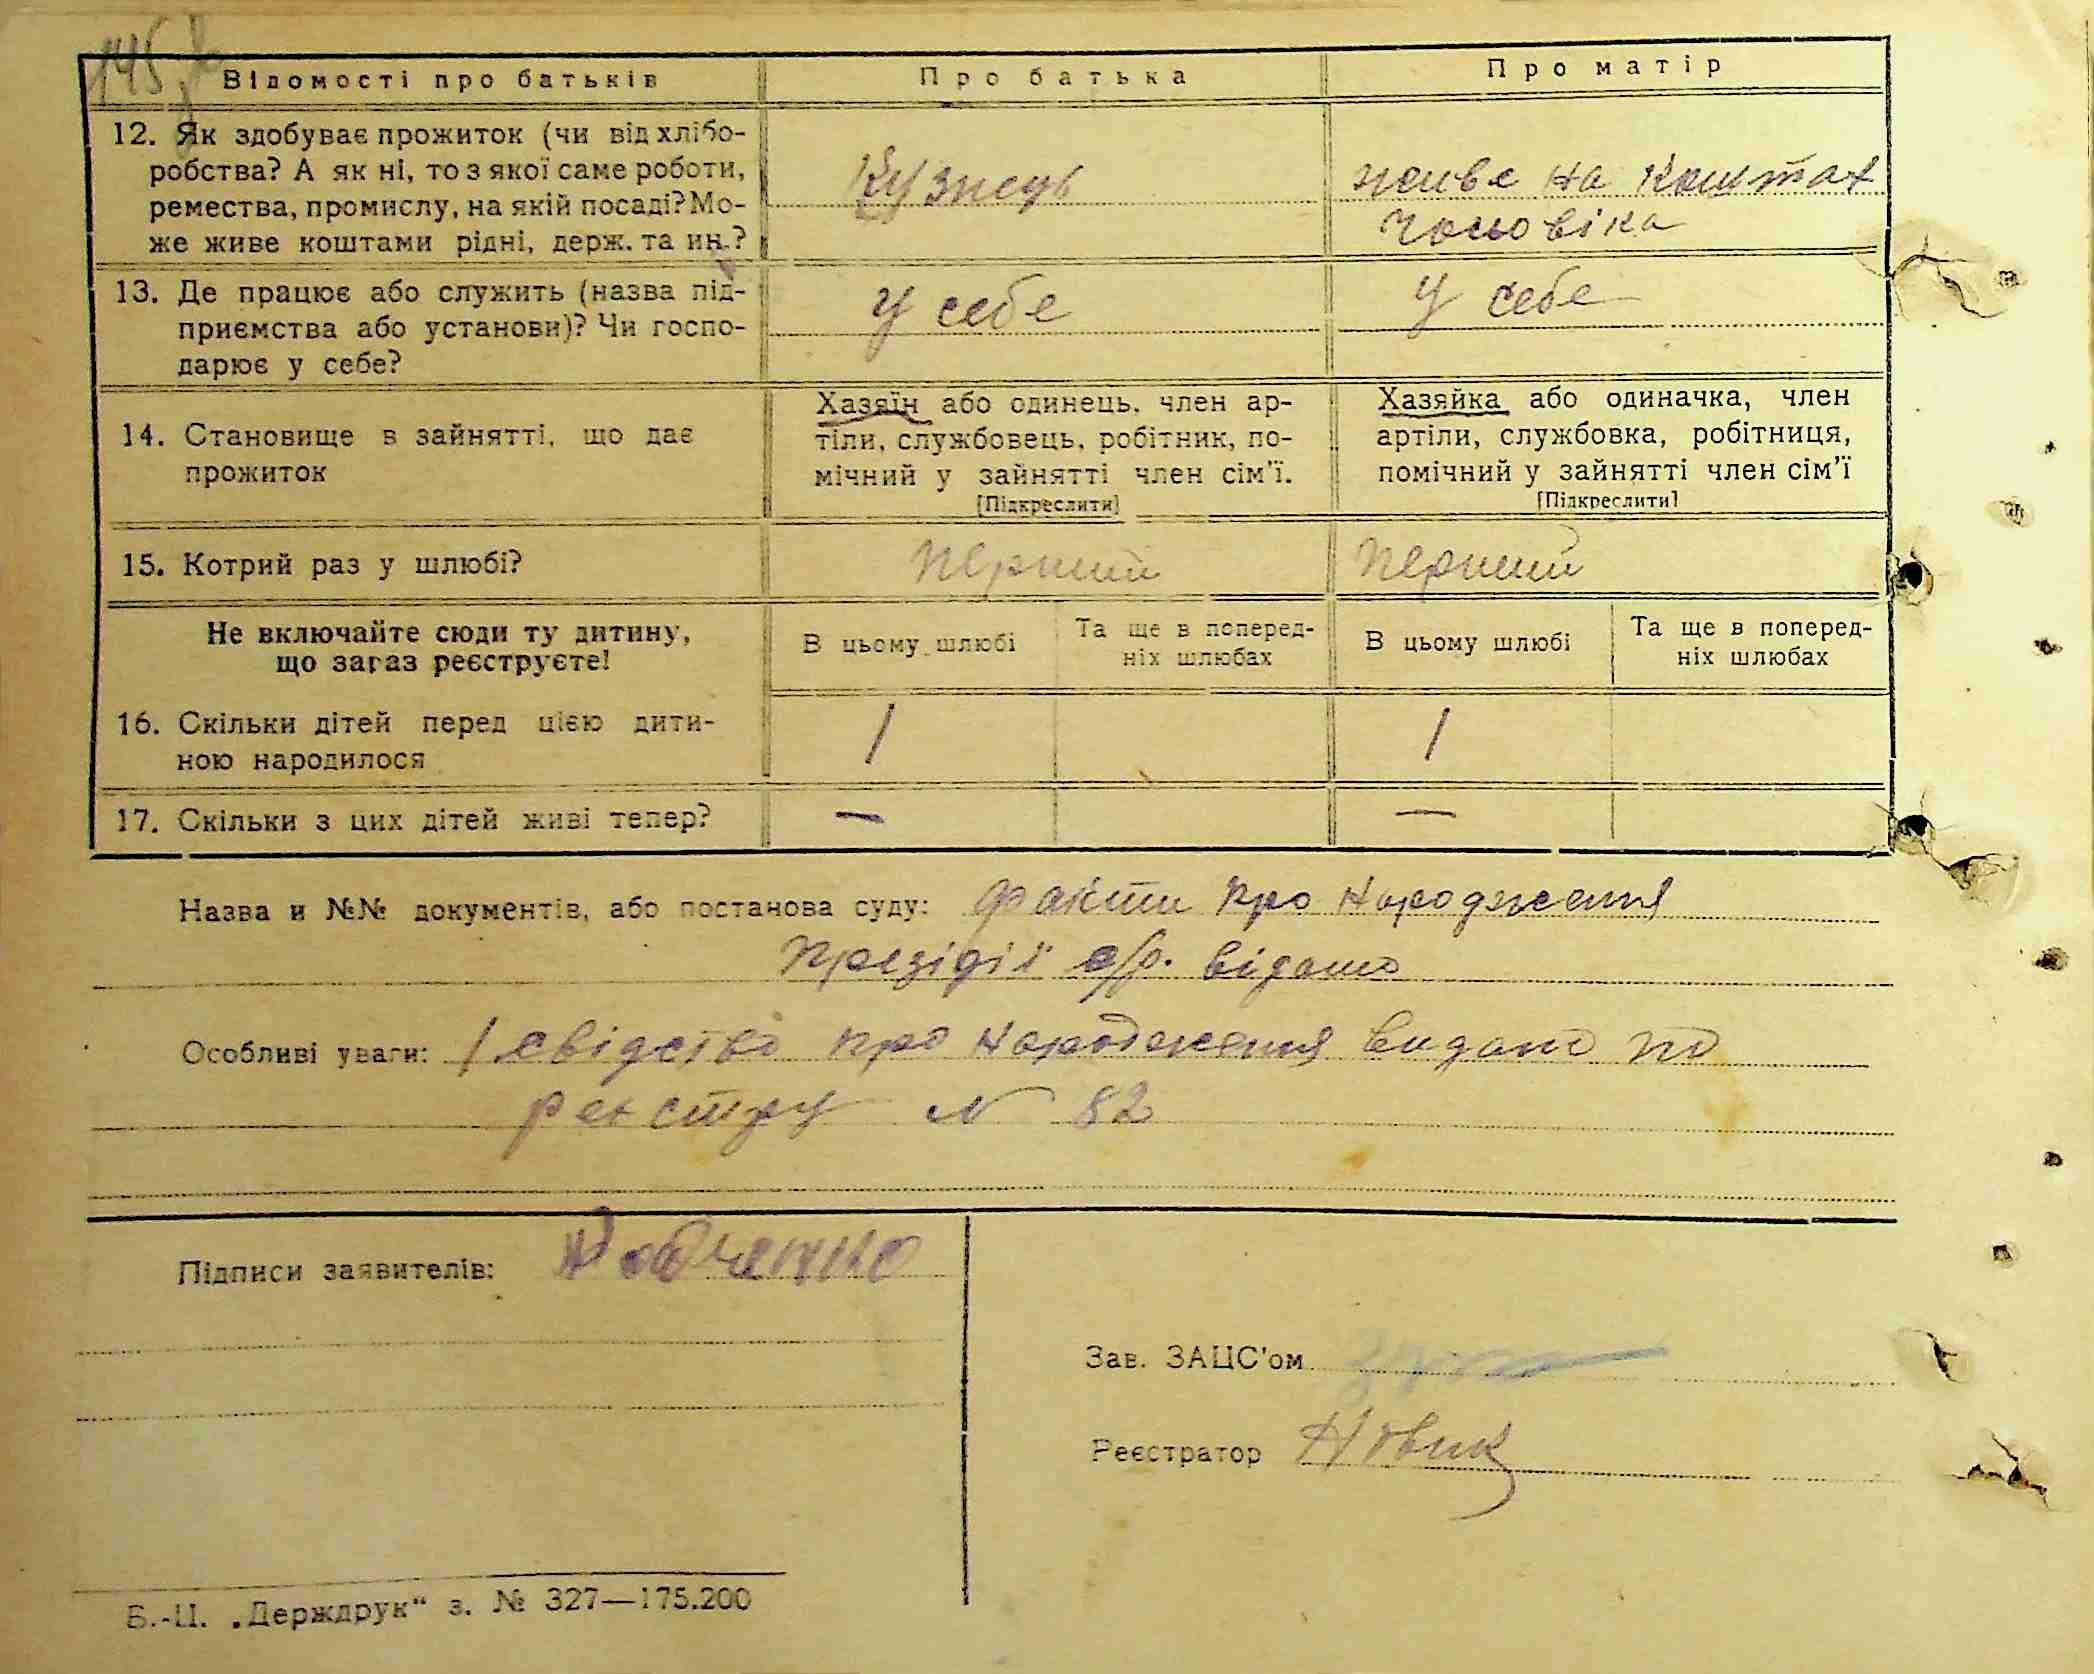 145
Відомості про батьків
Про батька
Про матір
12. Як здобуває прожиток (чи від хлібо-
робства? А як ні, то з якої саме роботи,
ремества, промислу, на якій посаді? Мо-
же живе коштами рідні, держ. та ин.?
Кузнець
живе на коштах
чоловіка
13. Де працює або служить (назва під-
приємства або установи)? Чи госпо-
дарює у себе?
У себе
У себе
14. Становище в зайнятті, що дає
прожиток
Хазяїн або одинець, член ар-
тіли, службовець, робітник, по-
мічний у зайнятті член сім'ї.
[Підкреслити]
Хазяйка або одиначка, член
артіли, службовка, робітниця,
помічний у зайнятті член сім'ї
[Підкреслити]
15. Котрий раз у шлюбі?
перший
перший
Не включайте сюди ту дитину,
що зараз реєструєте!
В цьому шлюбі
Та ще в поперед-
ніх шлюбах
В цьому шлюбі
Та ще в поперед-
ніх шлюбах
16. Скільки дітей перед цією дити-
ною народилося
1
1
17. Скільки з цих дітей живі тепер?
—
—
Назва и №№ документів, або постанова суду: факти про народження
презідії с/р. відомо
Особливі уваги: свідство про народження видано по
реєстру N 82
Підписи заявителів:
Зав. ЗАЦС'ом
Реєстратор Новик
Б.-Ц. „Держдрук“ з. № 327—175.200